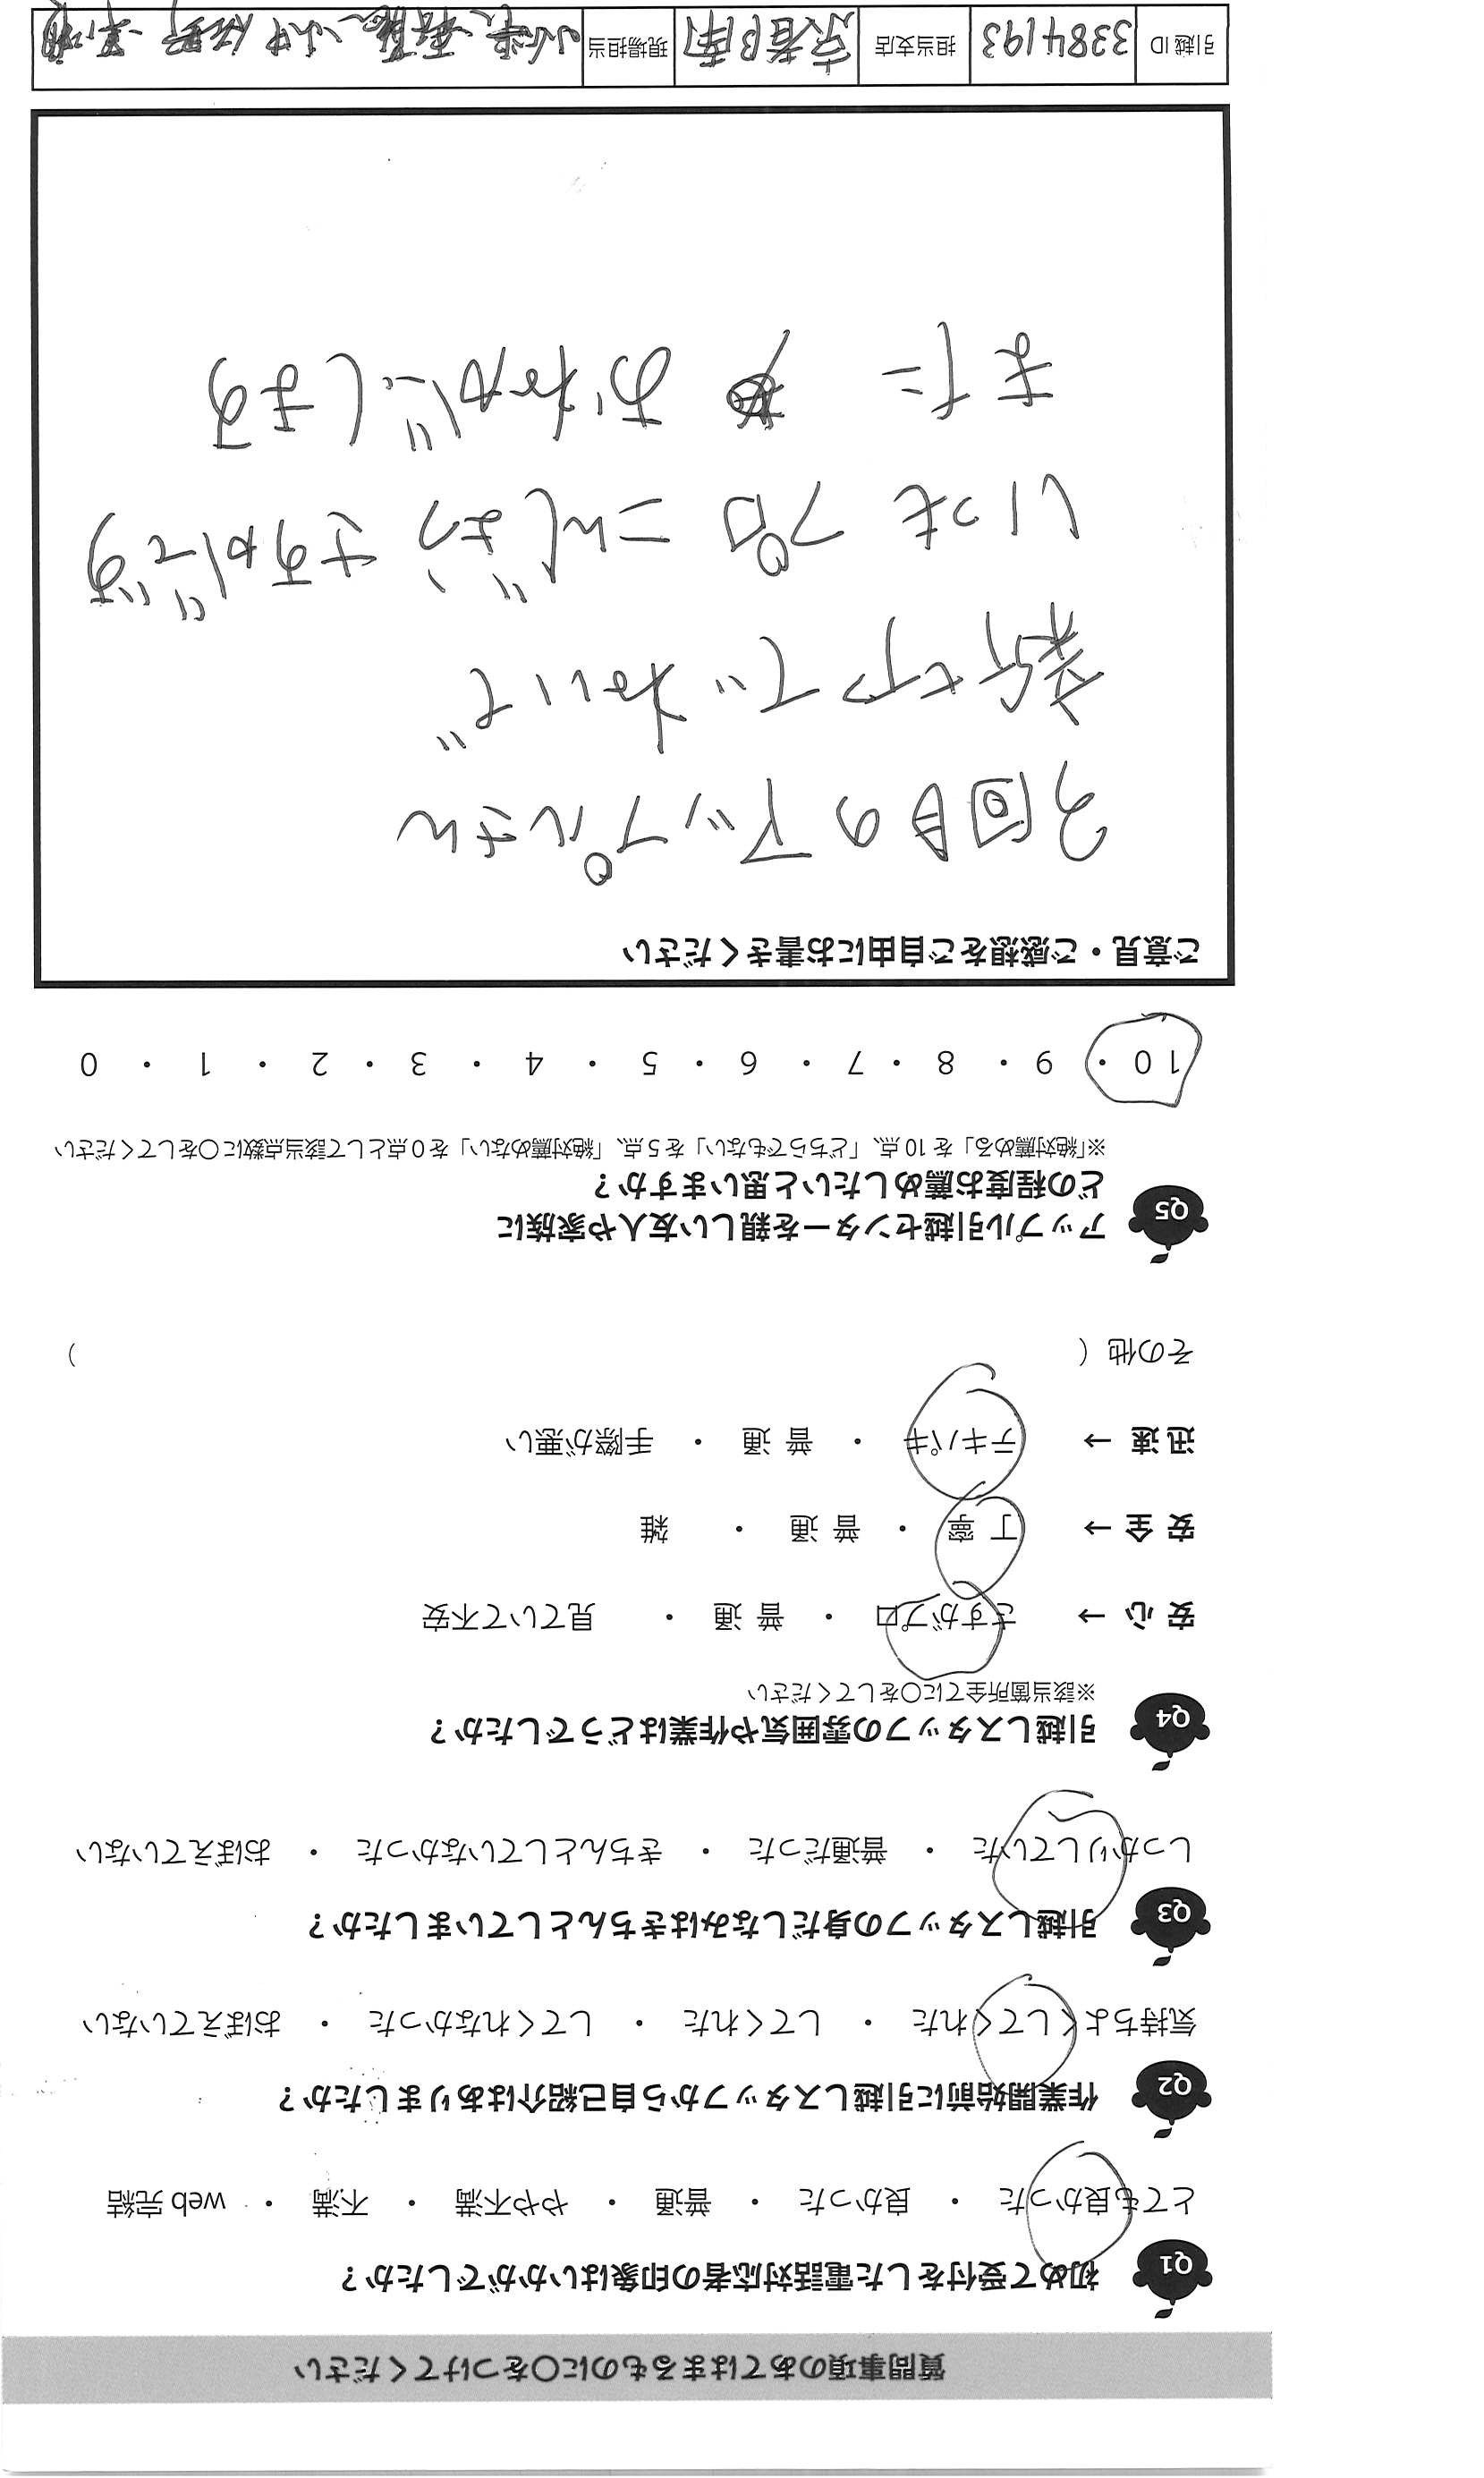 質問事項のあてはまるものに○をつけてください
Q1 初めて受付をした電話対応者の印象はいかがでしたか？
とても良かった ・ 良かった ・ 普通 ・ やや不満 ・ 不満 ・ web 完結
Q2 作業開始前に引越しスタッフから自己紹介はありましたか？
気持ちよくしてくれた ・ してくれた ・ してくれなかった ・ おぼえていない
Q3 引越しスタッフの身だしなみはきちんとしていましたか？
しっかりしていた ・ 普通だった ・ きちんとしていなかった ・ おぼえていない
Q4 引越しスタッフの雰囲気や作業はどうでしたか？
※該当箇所全てに○をしてください
安 心 → さすがプロ ・ 普 通 ・ 見ていて不安
安 全 → 丁 寧 ・ 普 通 ・ 雑
迅 速 → テキパキ ・ 普 通 ・ 手際が悪い
その他（ ）
Q5 アップル引越センターを親しい友人や家族に
どの程度お薦めしたいと思いますか？
※「絶対薦める」を 10 点、「どちらでもない」を 5 点、「絶対薦めない」を 0 点として該当点数に○をしてください
10 ・ 9 ・ 8 ・ 7 ・ 6 ・ 5 ・ 4 ・ 3 ・ 2 ・ 1 ・ 0
ご意見・ご感想をご自由にお書きください
3回目のアップルさん
ていねいで
いつも プロ さすがです
また おねがいします
引越 ID 3384193 担当支店 京都南 現場担当